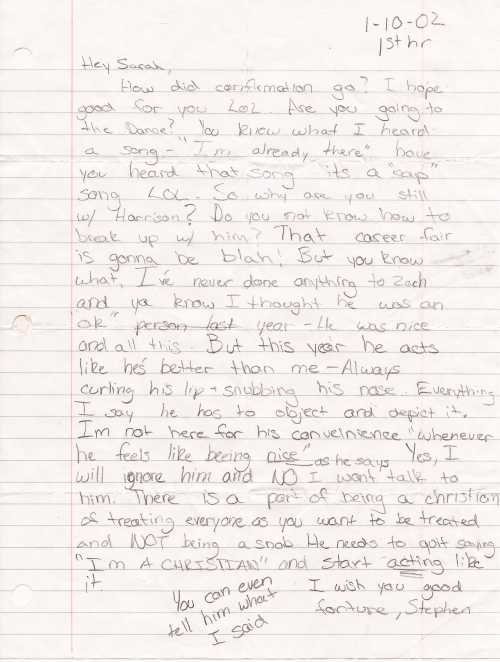 1-10-02
1st hr
Hey Sarah,
How did confirmation go? I hope
good for you LOL. Are you going to
the Dance? You know what I heard
a song - "I'm already there" have
you heard that song its a "sap"
song LOL. So why are you still
w/ Harrison? Do you not know how to
break up w/ him? That career fair
is gonna be blah! But you know
what, I've never done anything to Zach
and ya know I thought he was an
"ok" person last year - He was nice
and all this. But this year he acts
like he's better than me - Always
curling his lip + snubbing his nose. Everything
I say he has to object and depict it.
Im not here for his conveinience "whenever
he feels like beeing nice" as he says Yes, I
will ignore him and NO I wont talk to
him. There is a part of being a christian
of treating everyone as you want to be treated
and NOT being a snob. He needs to quit saying
"I'm A CHRISTIAN" and start acting like
it.
I wish you good
foriture, Stephen
You can even
tell him what
I said